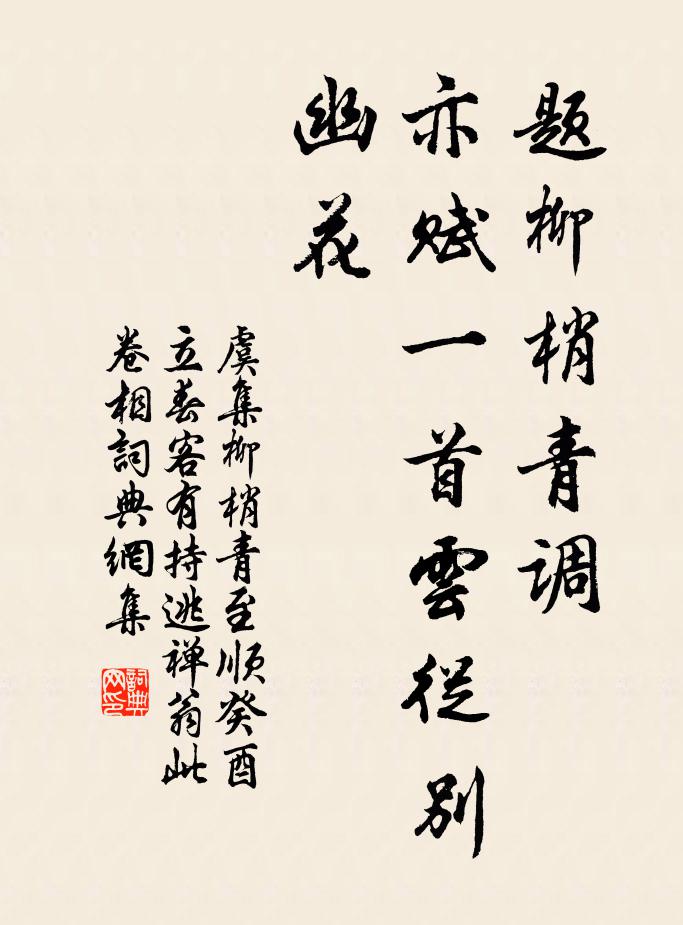 题柳梢青调
亦赋一首雲従别
幽花
虞集柳梢青至顺癸酉
立春客有持逃禅翁此
卷相詞典網集
詞典
网印